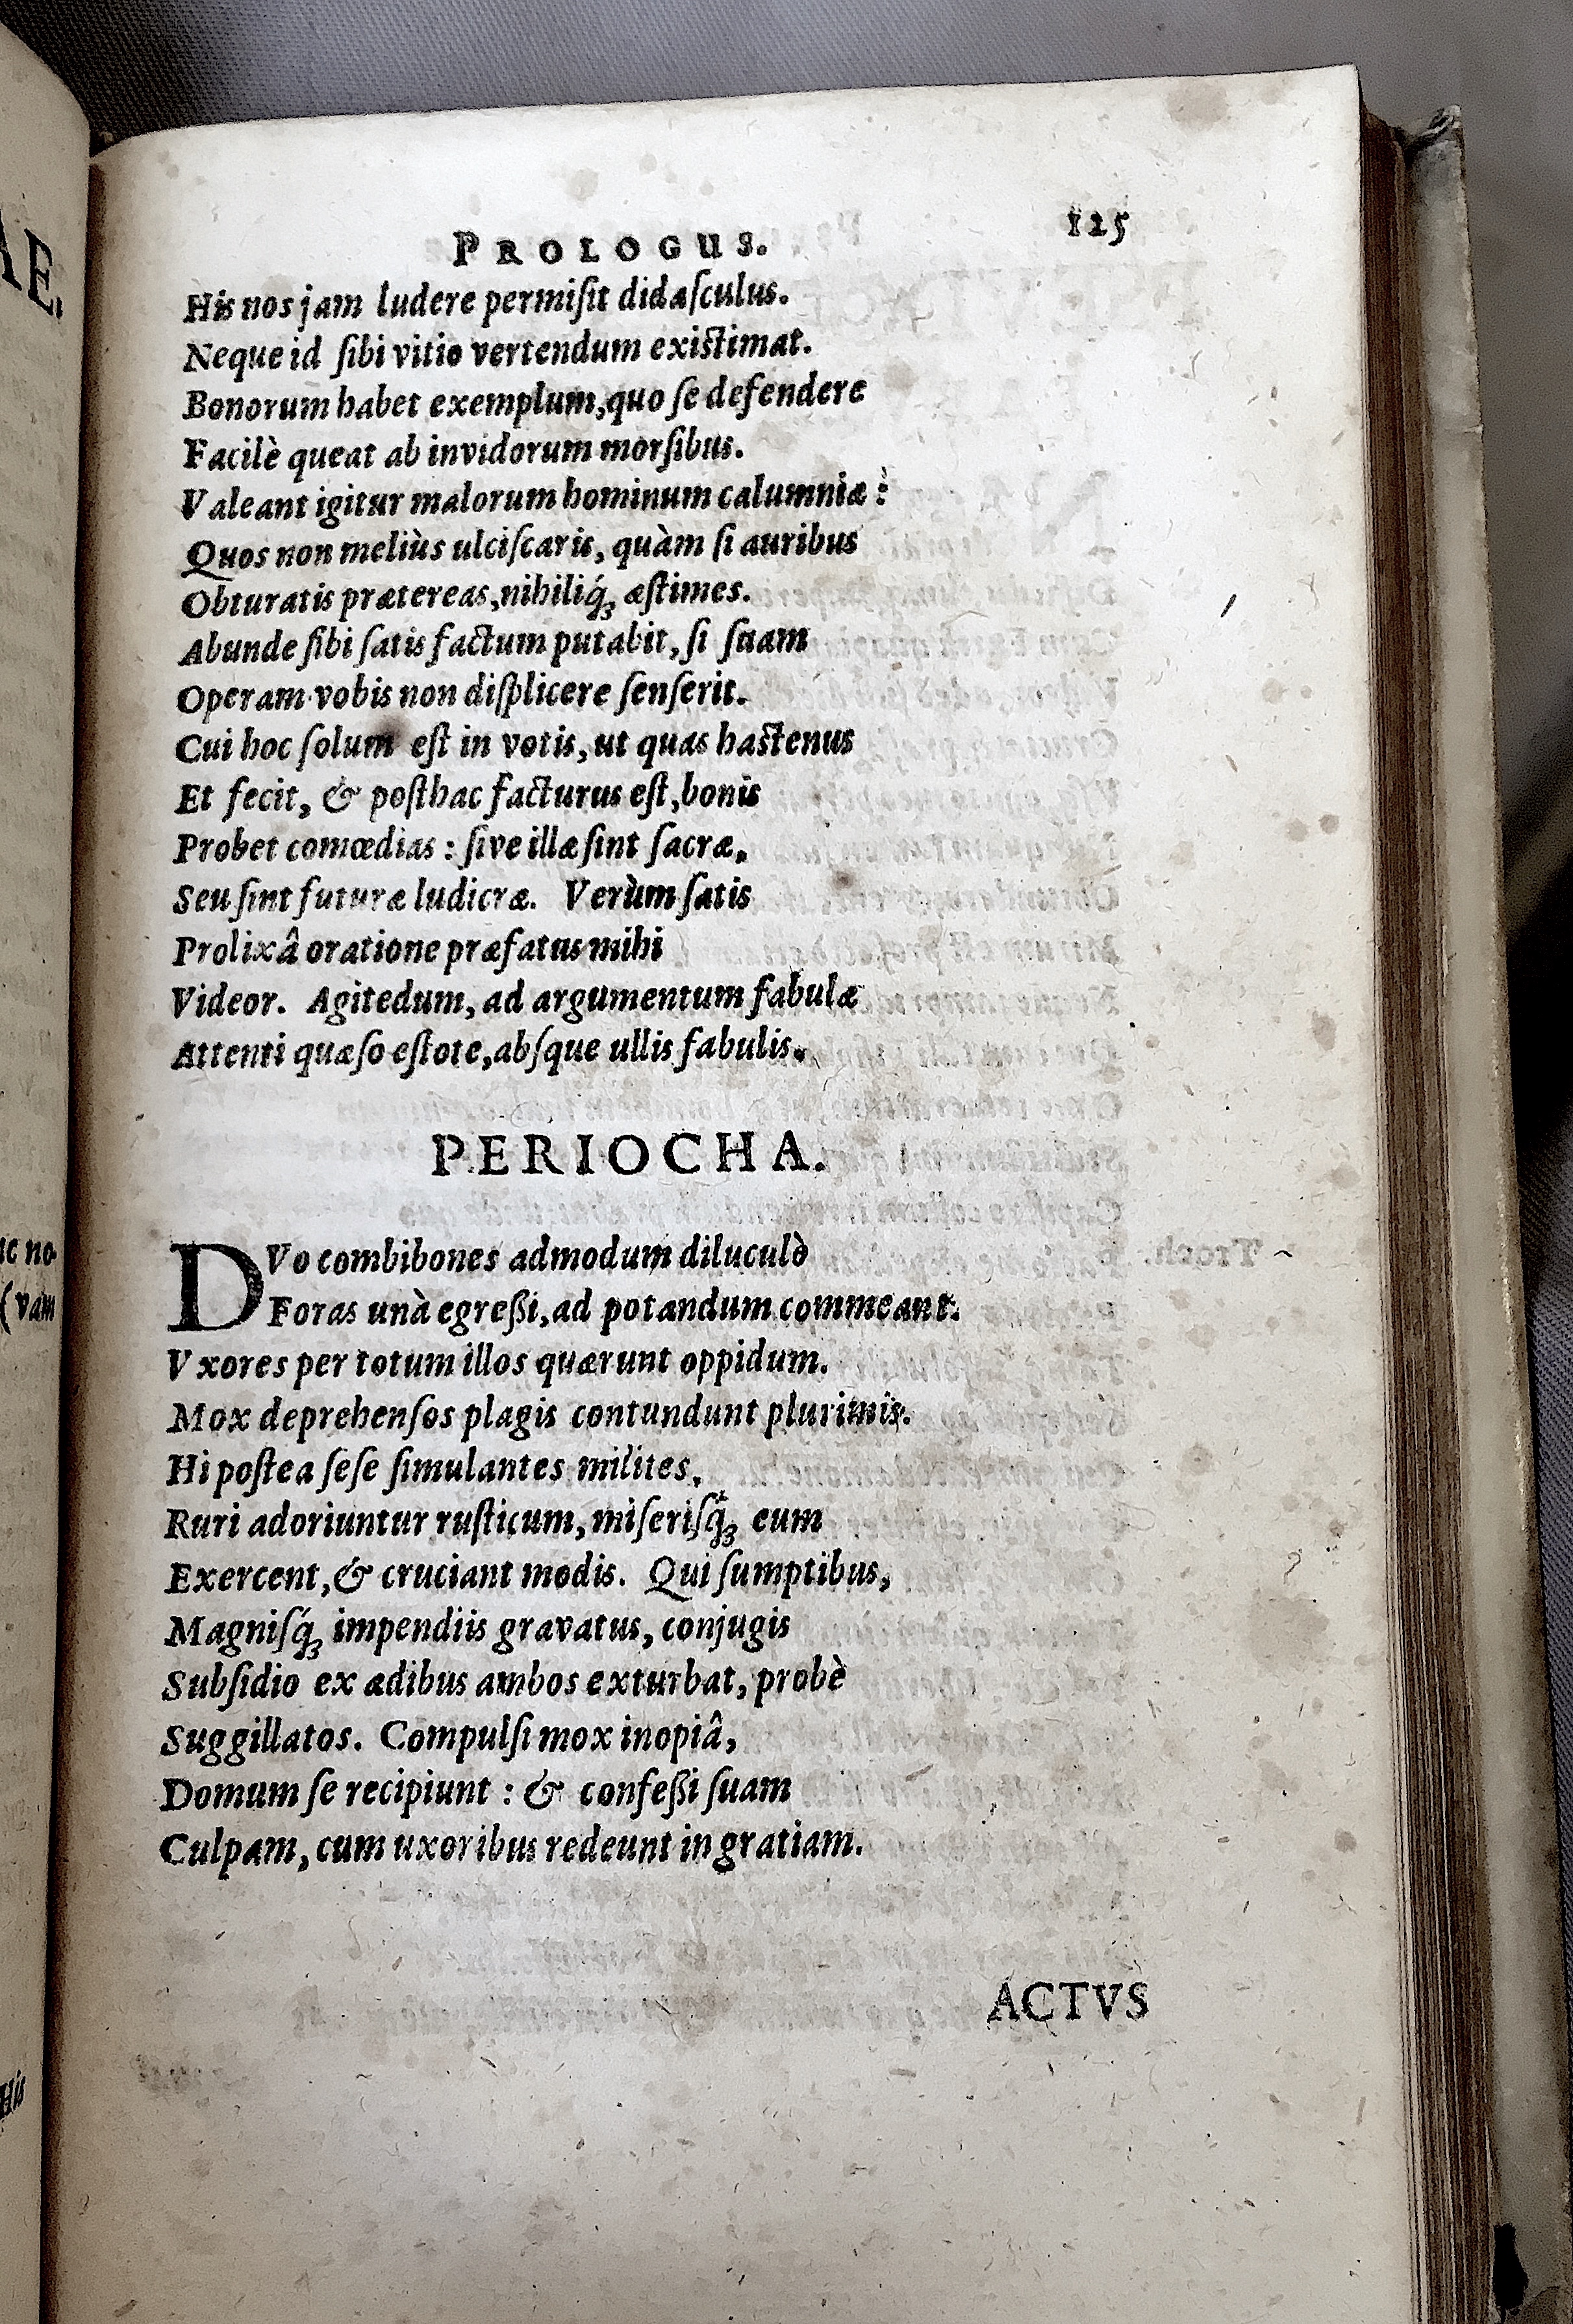 AE.
PROLOGUS. 125
His nos jam ludere permiſit didaſculus.
Neque id ſibi vitio vertendum exiſtimat.
Bonorum habet exemplum, quo ſe defendere
Facilè queat ab invidorum morſibus.
Valeant igitur malorum hominum calumniæ:
Quos non meliùs ulciſcaris, quàm ſi auribus
Obturatis prætereas, nihiliq́ꝫ æſtimes.
Abunde ſibi ſatis factum putabit, ſi ſuam
Operam vobis non diſplicere ſenſerit.
Cui hoc ſolum eſt in votis, ut quas hactenus
Et fecit, & poſthac facturus eſt, bonis
Probet comœdias : ſive illæ ſint ſacræ,
Seu ſint futuræ ludicræ. Verùm ſatis
Prolixâ oratione præfatus mihi
Videor. Agitedum, ad argumentum fabulæ
Attenti quæſo eſtote, abſque ullis fabulis.
PERIOCHA.
DVo combibones admodum diluculò
Foras unà egreßi, ad potandum commeant.
Vxores per totum illos quærunt oppidum.
Mox deprehenſos plagis contundunt plurimis.
Hi poſtea ſeſe ſimulantes milites,
Ruri adoriuntur ruſticum, miſeriſq́ꝫ eum
Exercent, & cruciant modis. Qui ſumptibus,
Magniſq́ꝫ impendiis gravatus, conjugis
Subſidio ex ædibus ambos exturbat, probè
Suggillatos. Compulſi mox inopiâ,
Domum ſe recipiunt : & confeßi ſuam
Culpam, cum uxoribus redeunt in gratiam.
ACTVS
no-
(vam
His